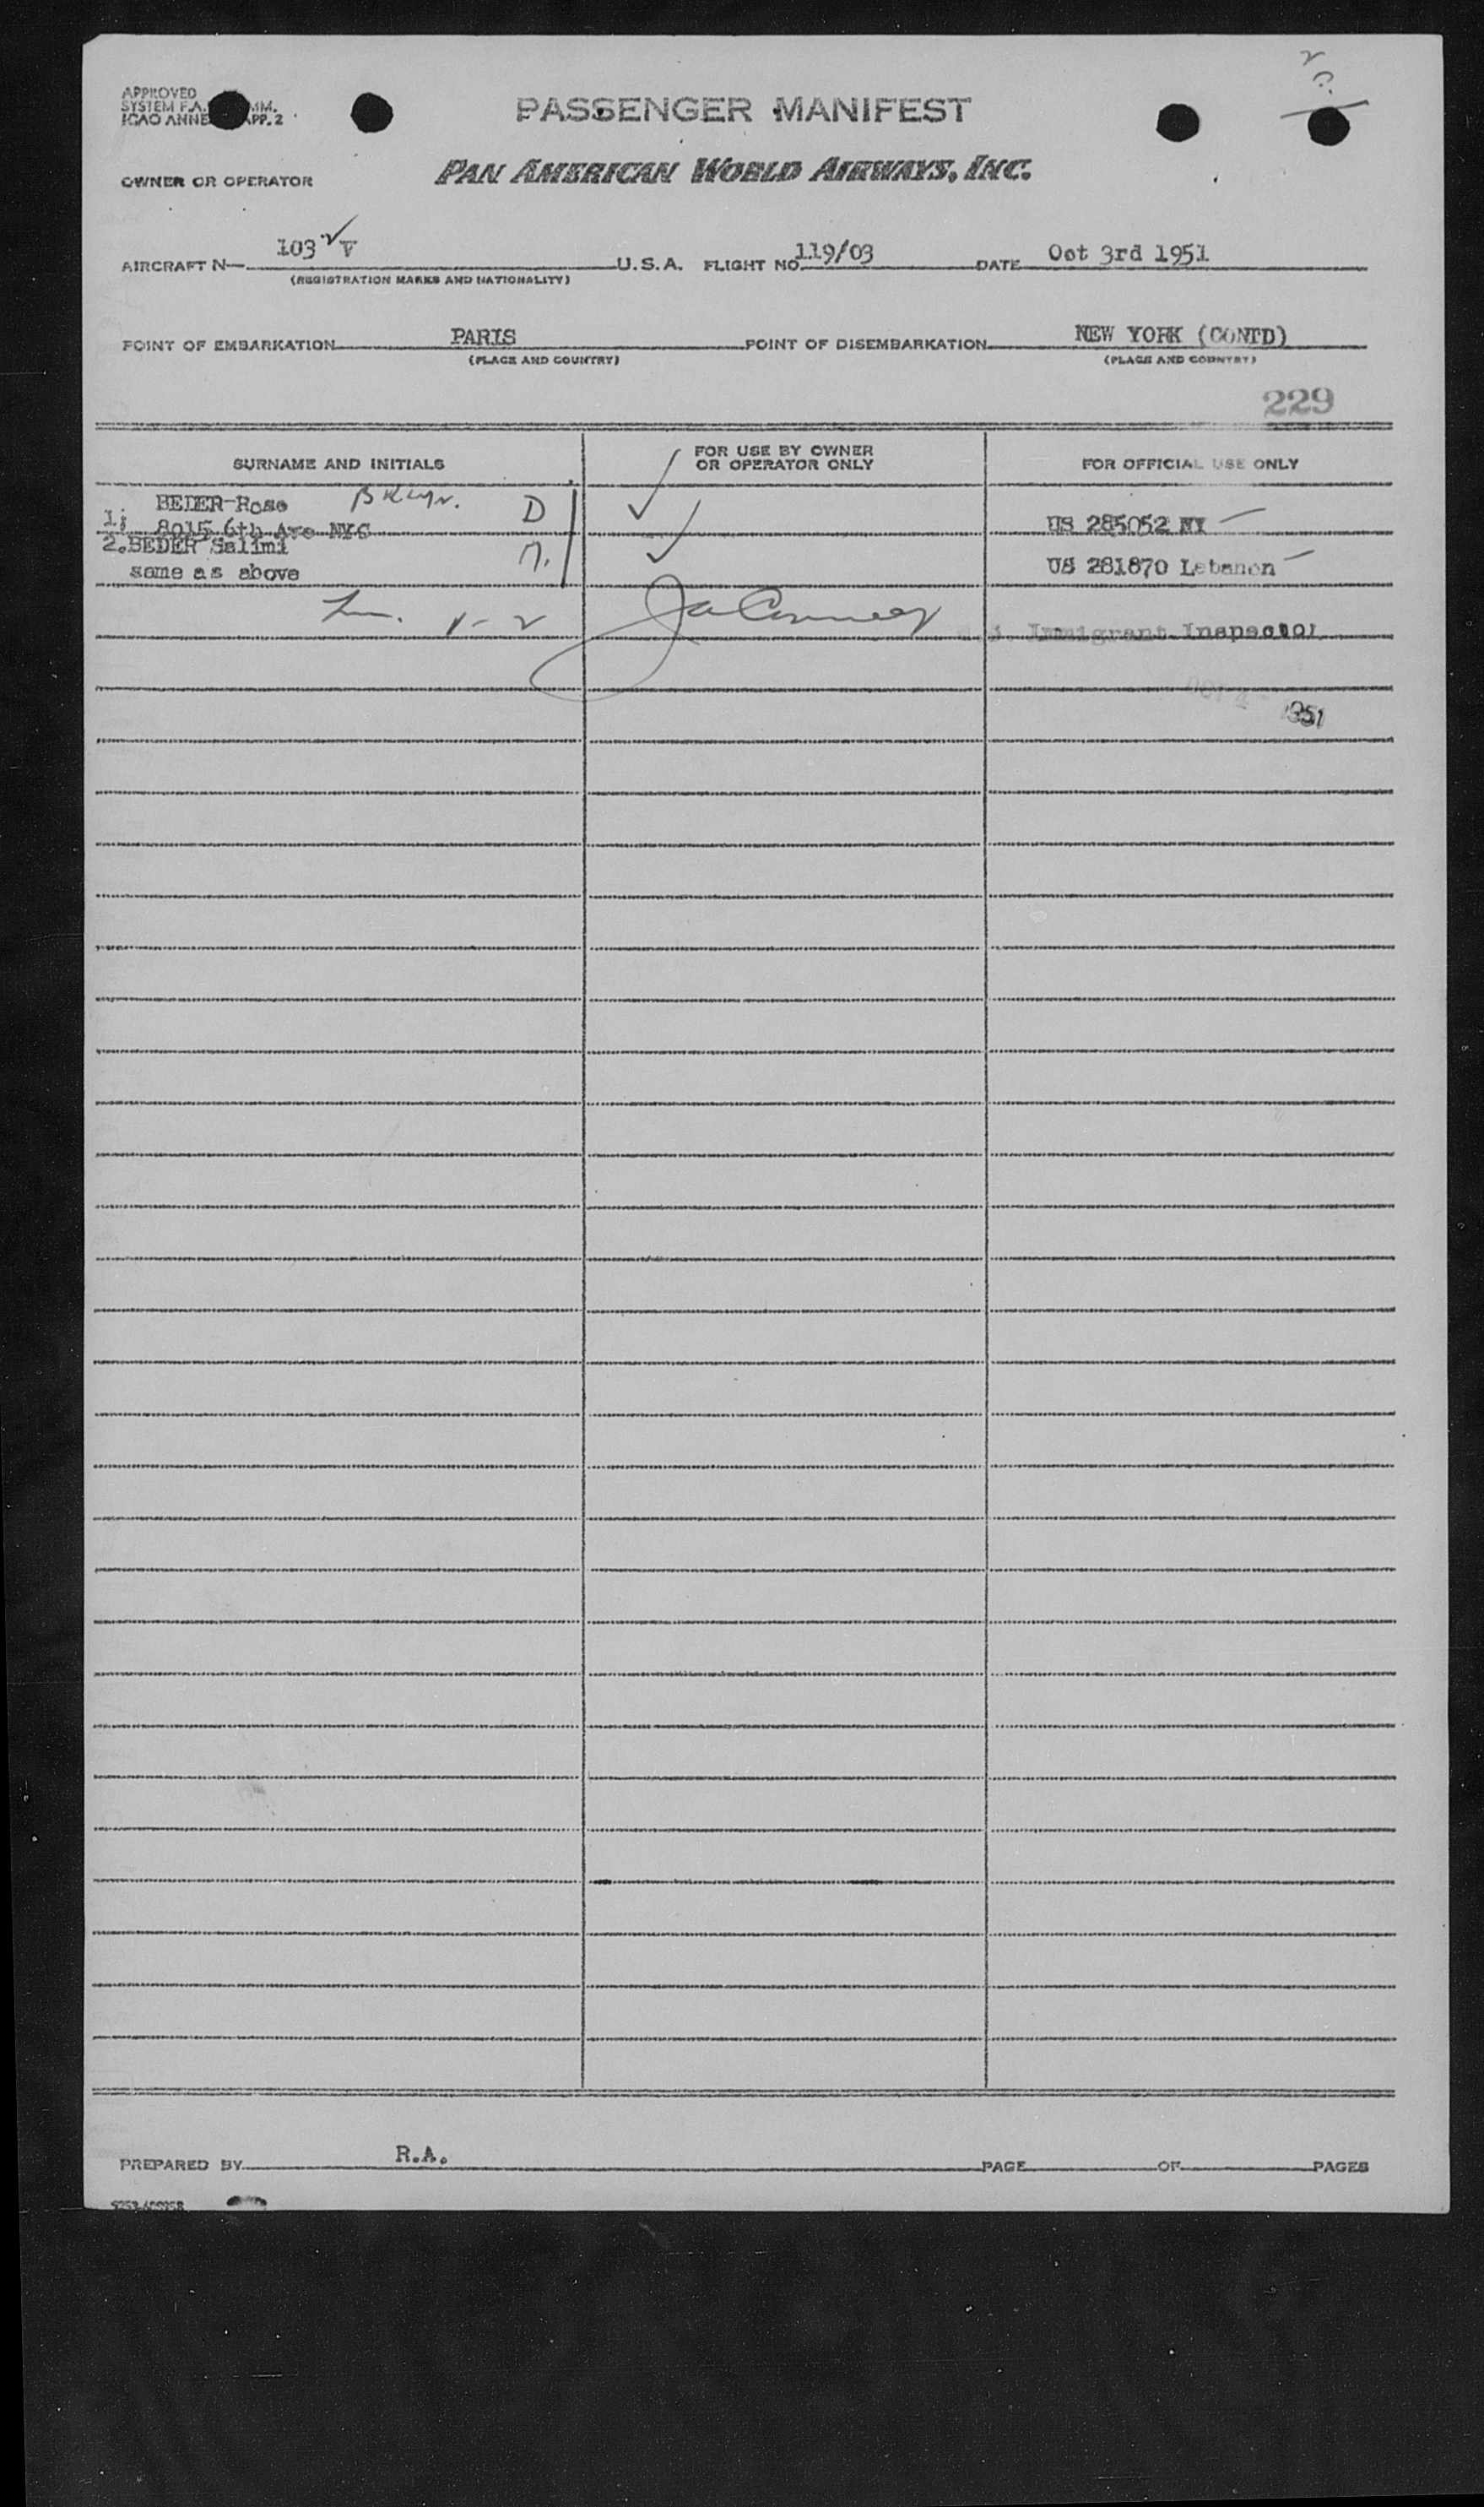 APPROVED
SYSTEM F.A.
ICAO ANNE APP. 2
PASSENGER MANIFEST
PAN AMERICAN WORLD AIRWAYS, INC.
OWNER OR OPERATOR
AIRCRAFT N— 103 V U.S.A. FLIGHT NO. 119/03 DATE Oct 3rd 1951
(REGISTRATION MARKS AND NATIONALITY)
POINT OF EMBARKATION PARIS POINT OF DISEMBARKATION NEW YORK (CONTD)
(PLACE AND COUNTRY) (PLACE AND COUNTRY)
229
SURNAME AND INITIALS FOR USE BY OWNER OR OPERATOR ONLY FOR OFFICIAL USE ONLY
BEDER Rose Bklyn. D
1; 8015 6th Ave NYC US 285052 NY
2. BEDER Salimi
same as above US 281870 Lebanon
1-2
Immigrant Inspector
OCT 4 1951
PREPARED BY R.A. PAGE OF PAGES